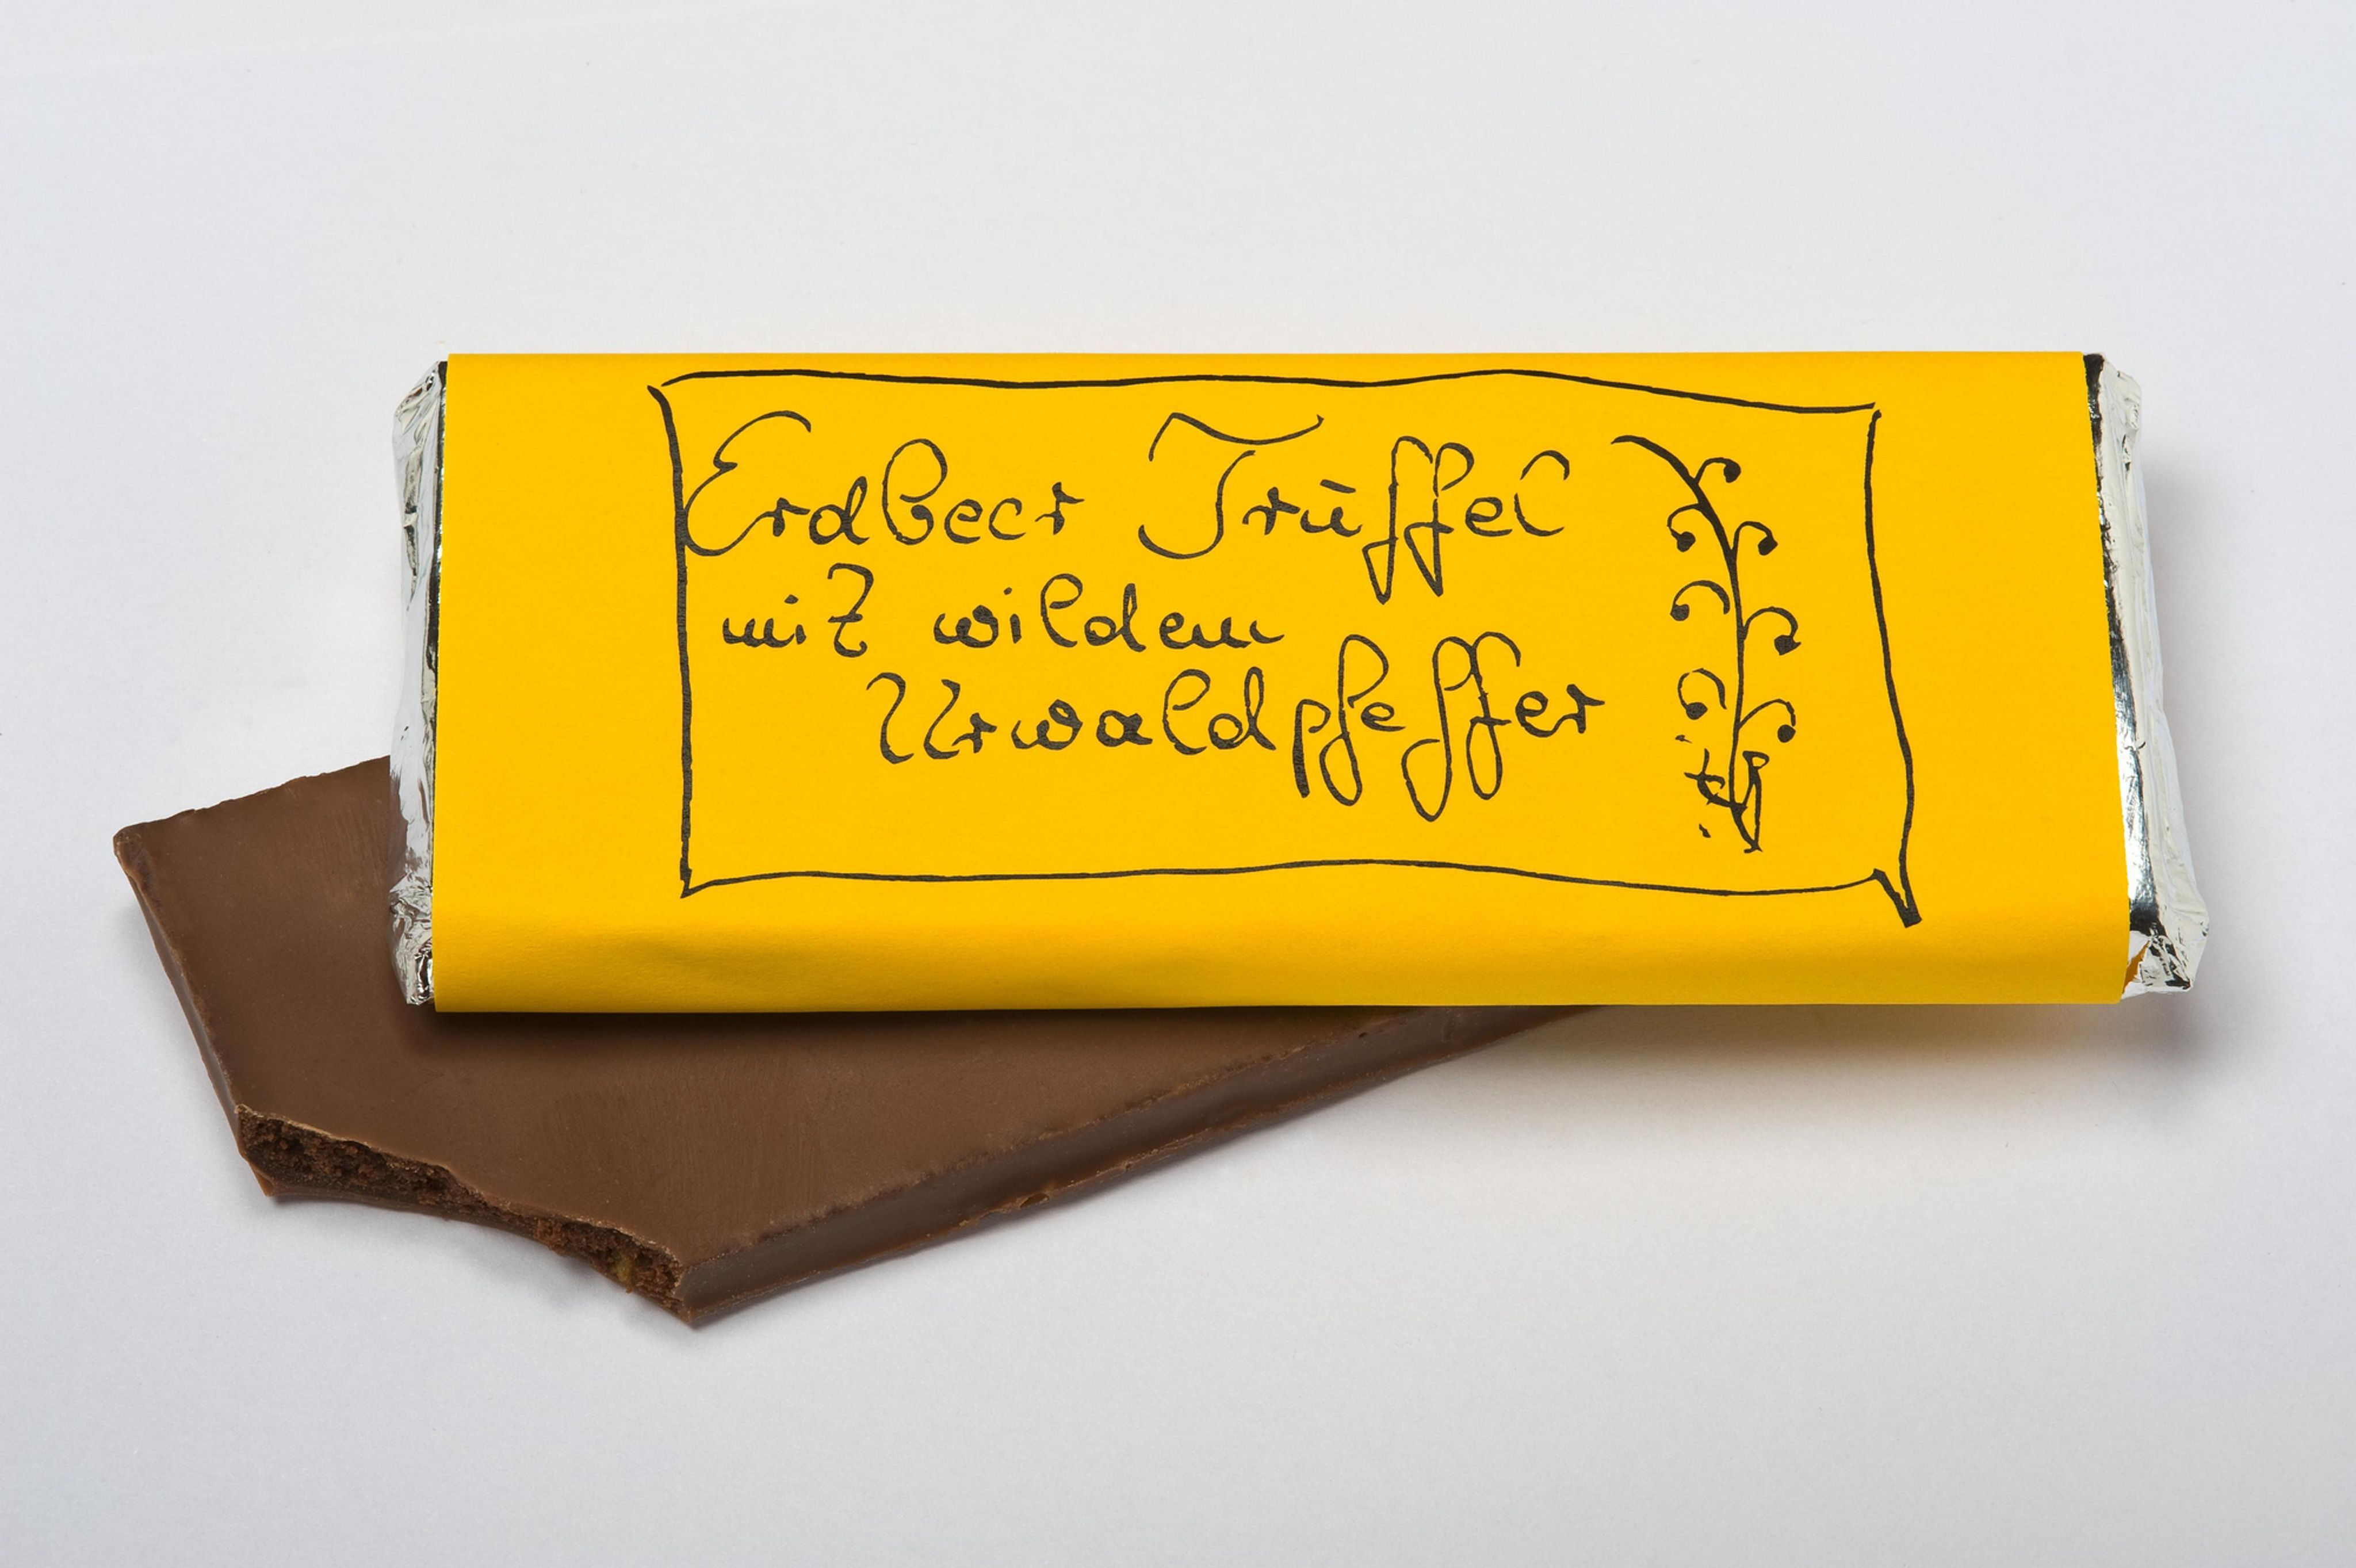 Erdbeer Trüffel
mit wildem
Urwaldpfeffer